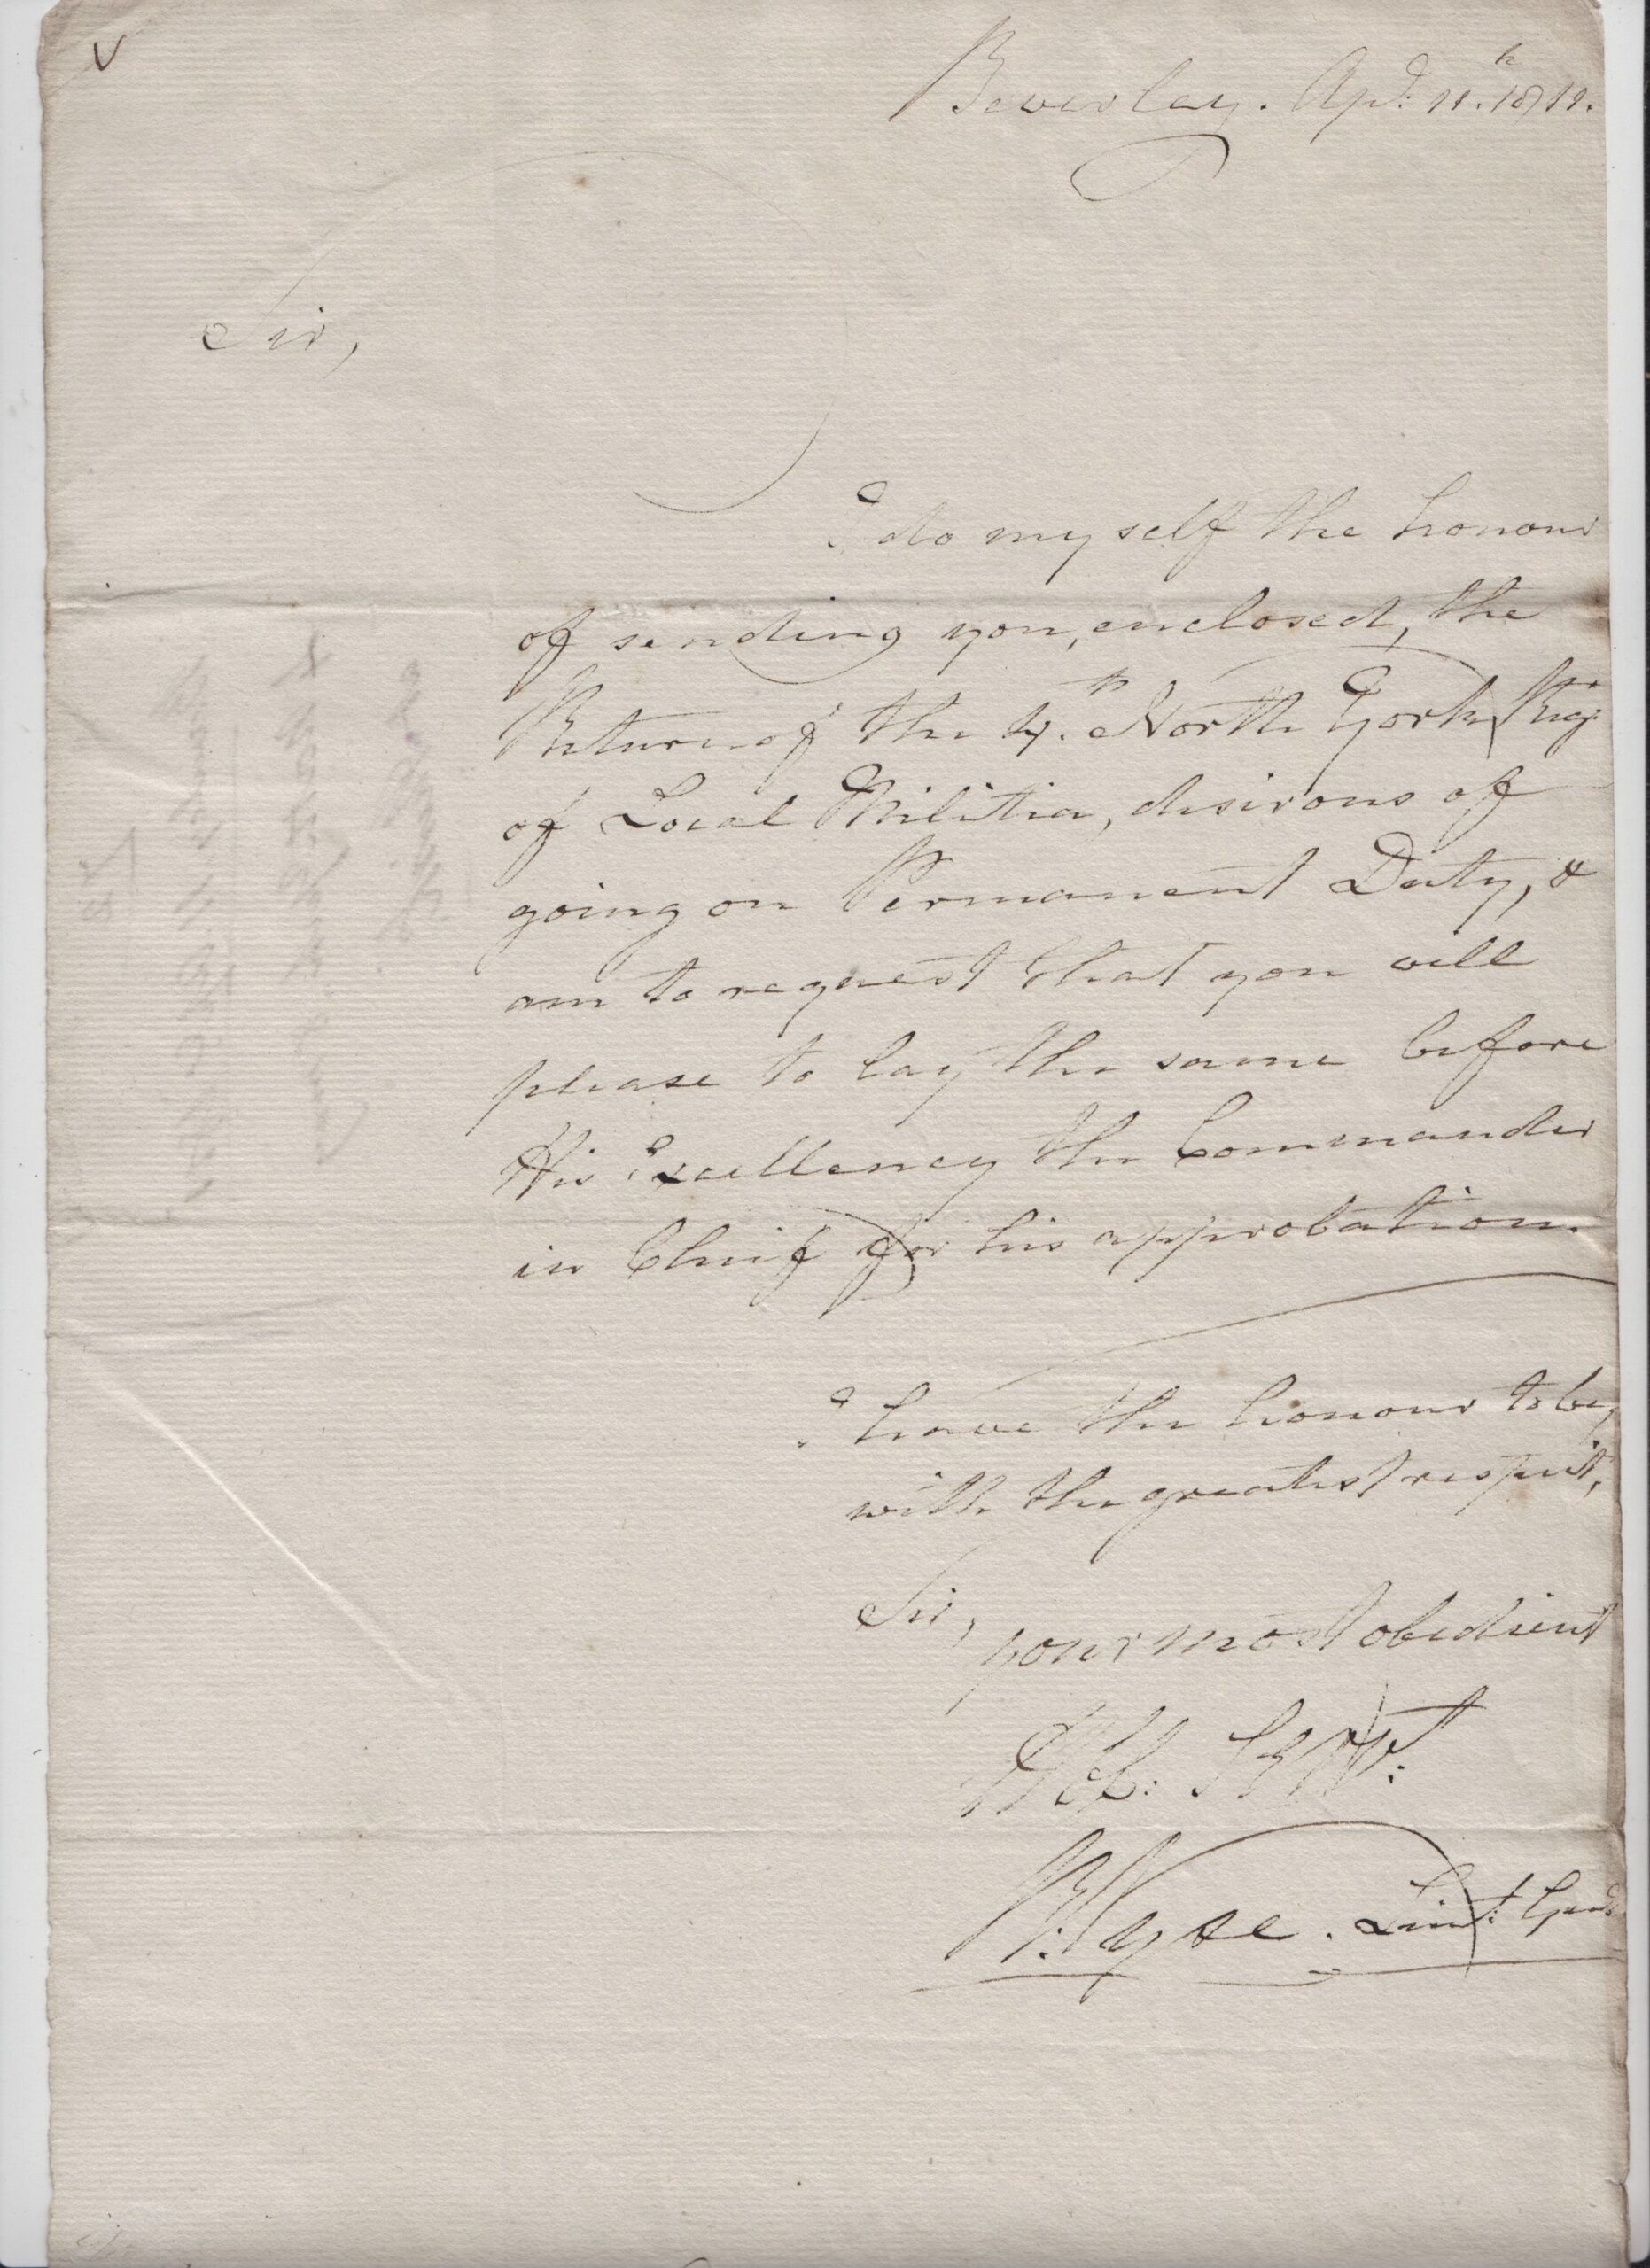 Beverley. Apl: 11.th 1811.
Sir,
I do myself the honour
of sending you, enclosed, the
Return of the 4.th North York Reg:
of Local Militia, desirous of
going on Permanent Duty, &
am to request that you will
please to lay the same before
His Excellency the Commander
in Chief for his approbation.
I have the honour to be,
with the greatest respect,
Sir,
your most obedient
Hble: Servt:
Wyse. Lieut: Genl: